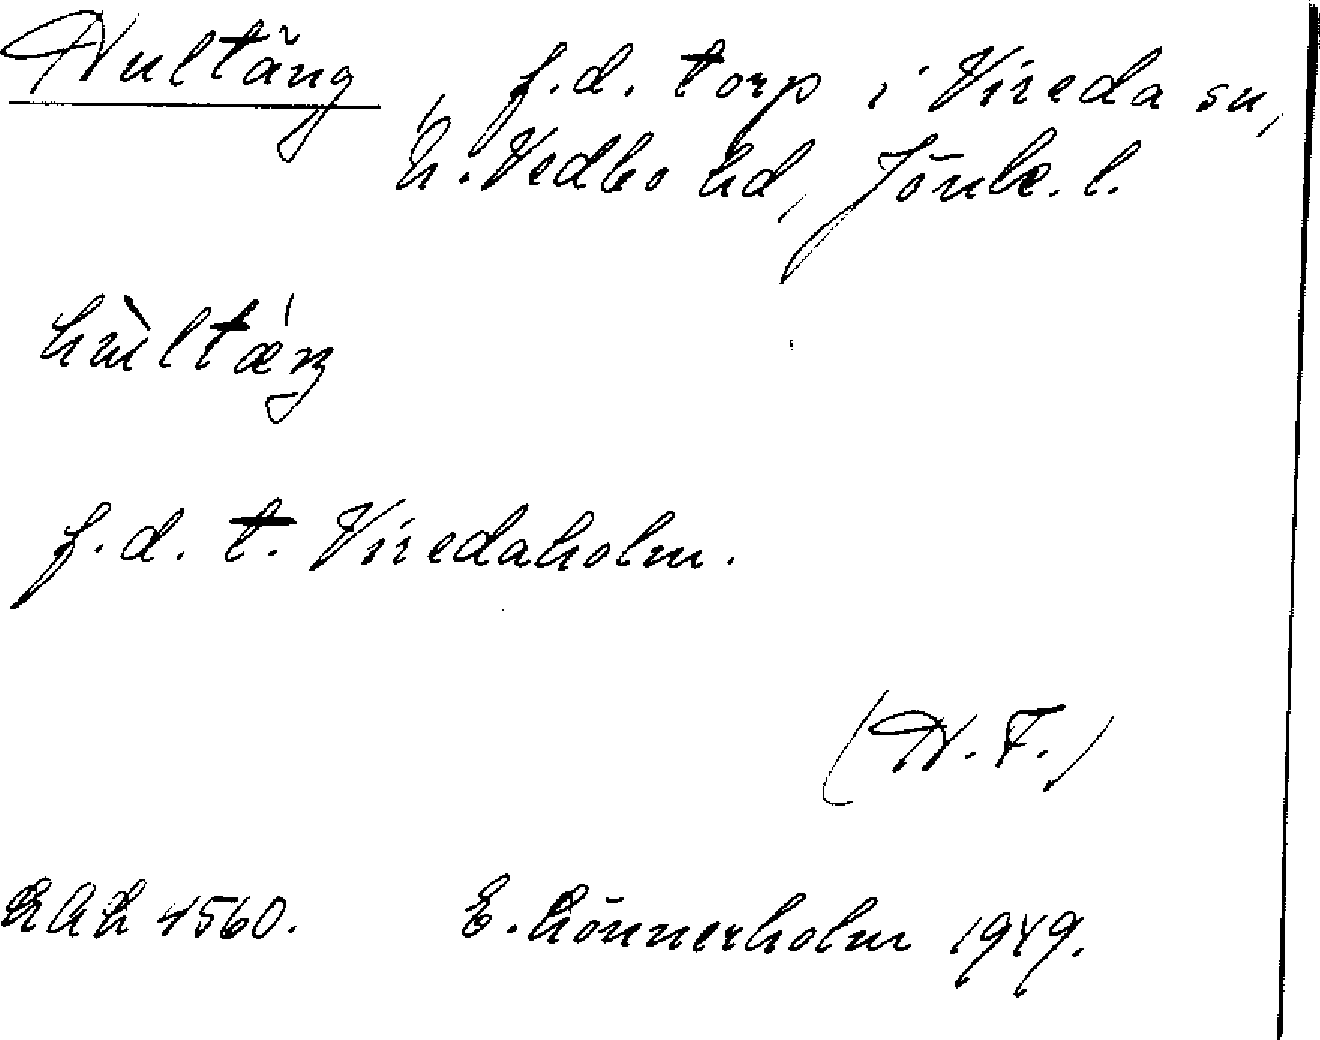 Hultäng f.d. torp i Vireda sn,
N. Vedbo hd, Jönk. l.
hùltáŋ
f.d. t. Viredaholm.
(H. F.)
4560. E. Lönnerholm 1949.